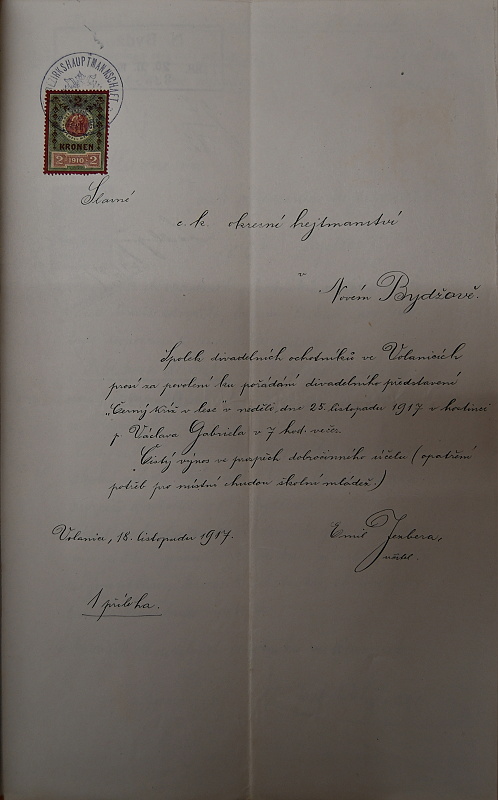 BEZIRKSHAUPTMANNSCHAFT
2
KRONEN
2 1910 2
Slavné
c. k. okresní hejtmanství
v
Novém Bydžově.
Spolek divadelních ochotníků ve Volanicích
prosí za povolení ku pořádání divadelního představení
"Černý kříž v lese" v neděli, dne 25. listopadu 1917 v hostinci
p. Václava Gabriela v 7 hod. večer.
Čistý výnos ve prospěch dobročinného účelu (opatření
potřeb pro místní chudou školní mládež.)
Volanice, 18. listopadu 1917.
Emil Jezbera,
učitel.
1 příloha.